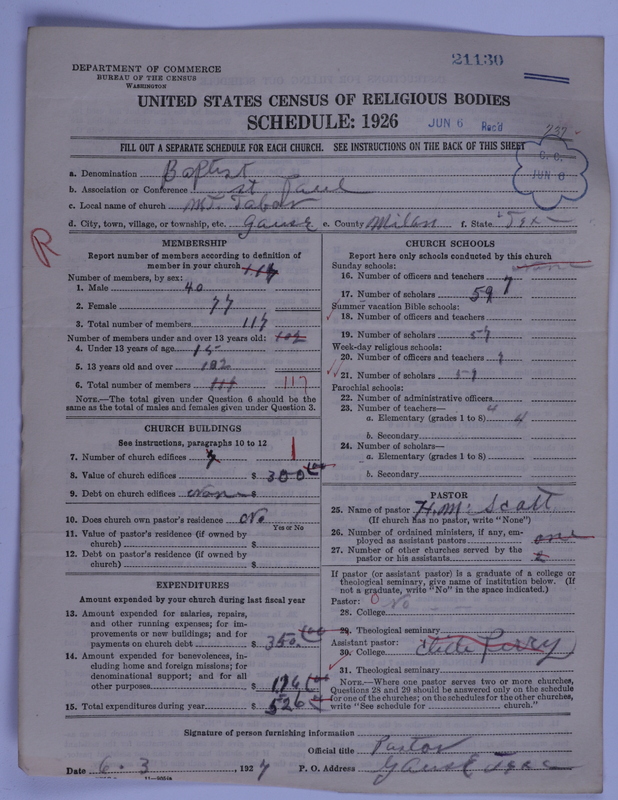 21130
DEPARTMENT OF COMMERCE
BUREAU OF THE CENSUS
WASHINGTON
UNITED STATES CENSUS OF RELIGIOUS BODIES
SCHEDULE: 1926
JUN 6 Rec'd
232
FILL OUT A SEPARATE SCHEDULE FOR EACH CHURCH. SEE INSTRUCTIONS ON THE BACK OF THIS SHEET
C. C.
JUN 6
a. Denomination Baptist
b. Association or Conference St Paul
c. Local name of church Mt. Tabor
d. City, town, village, or township, etc. Gause e. County Milan f. State Tex
R
MEMBERSHIP
Report number of members according to definition of
member in your church 117
Number of members, by sex:
1. Male 40
2. Female 77
3. Total number of members 117
Number of members under and over 13 years old: 102
4. Under 13 years of age 15
5. 13 years old and over 102
6. Total number of members 117 117
NOTE.—The total given under Question 6 should be the
same as the total of males and females given under Question 3.
CHURCH BUILDINGS
See instructions, paragraphs 10 to 12
7. Number of church edifices 1
8. Value of church edifices $ 300.00
9. Debt on church edifices none $
10. Does church own pastor's residence No
Yes or No
11. Value of pastor's residence (if owned by
church) $
12. Debt on pastor's residence (if owned by
church) $
EXPENDITURES
Amount expended by your church during last fiscal year
13. Amount expended for salaries, repairs,
and other running expenses; for im-
provements or new buildings; and for
payments on church debt $ 350.00
14. Amount expended for benevolences, in-
cluding home and foreign missions; for
denominational support; and for all
other purposes $ 176.00
15. Total expenditures during year $ 526
CHURCH SCHOOLS
Report here only schools conducted by this church
Sunday schools:
16. Number of officers and teachers 7
17. Number of scholars 59
Summer vacation Bible schools:
18. Number of officers and teachers
19. Number of scholars 57
Week-day religious schools:
20. Number of officers and teachers 7
21. Number of scholars 59
Parochial schools:
22. Number of administrative officers
23. Number of teachers— 4
a. Elementary (grades 1 to 8) 4
b. Secondary
24. Number of scholars—
a. Elementary (grades 1 to 8)
b. Secondary
PASTOR
25. Name of pastor H. M. Scott
(If church has no pastor, write "None")
26. Number of ordained ministers, if any, em-
ployed as assistant pastors one
27. Number of other churches served by the
pastor or his assistants
If pastor (or assistant pastor) is a graduate of a college or
theological seminary, give name of institution below. (If
not a graduate, write "No" in the space indicated.)
Pastor: 0
28. College No
29. Theological seminary
Assistant pastor:
30. College Perry
31. Theological seminary
NOTE.—Where one pastor serves two or more churches,
Questions 28 and 29 should be answered only on the schedule
for one of the churches; on the schedules for the other churches,
write "See schedule for church."
Signature of person furnishing information
Official title Pastor
Date 6-3, 1927 P. O. Address Gause Texas